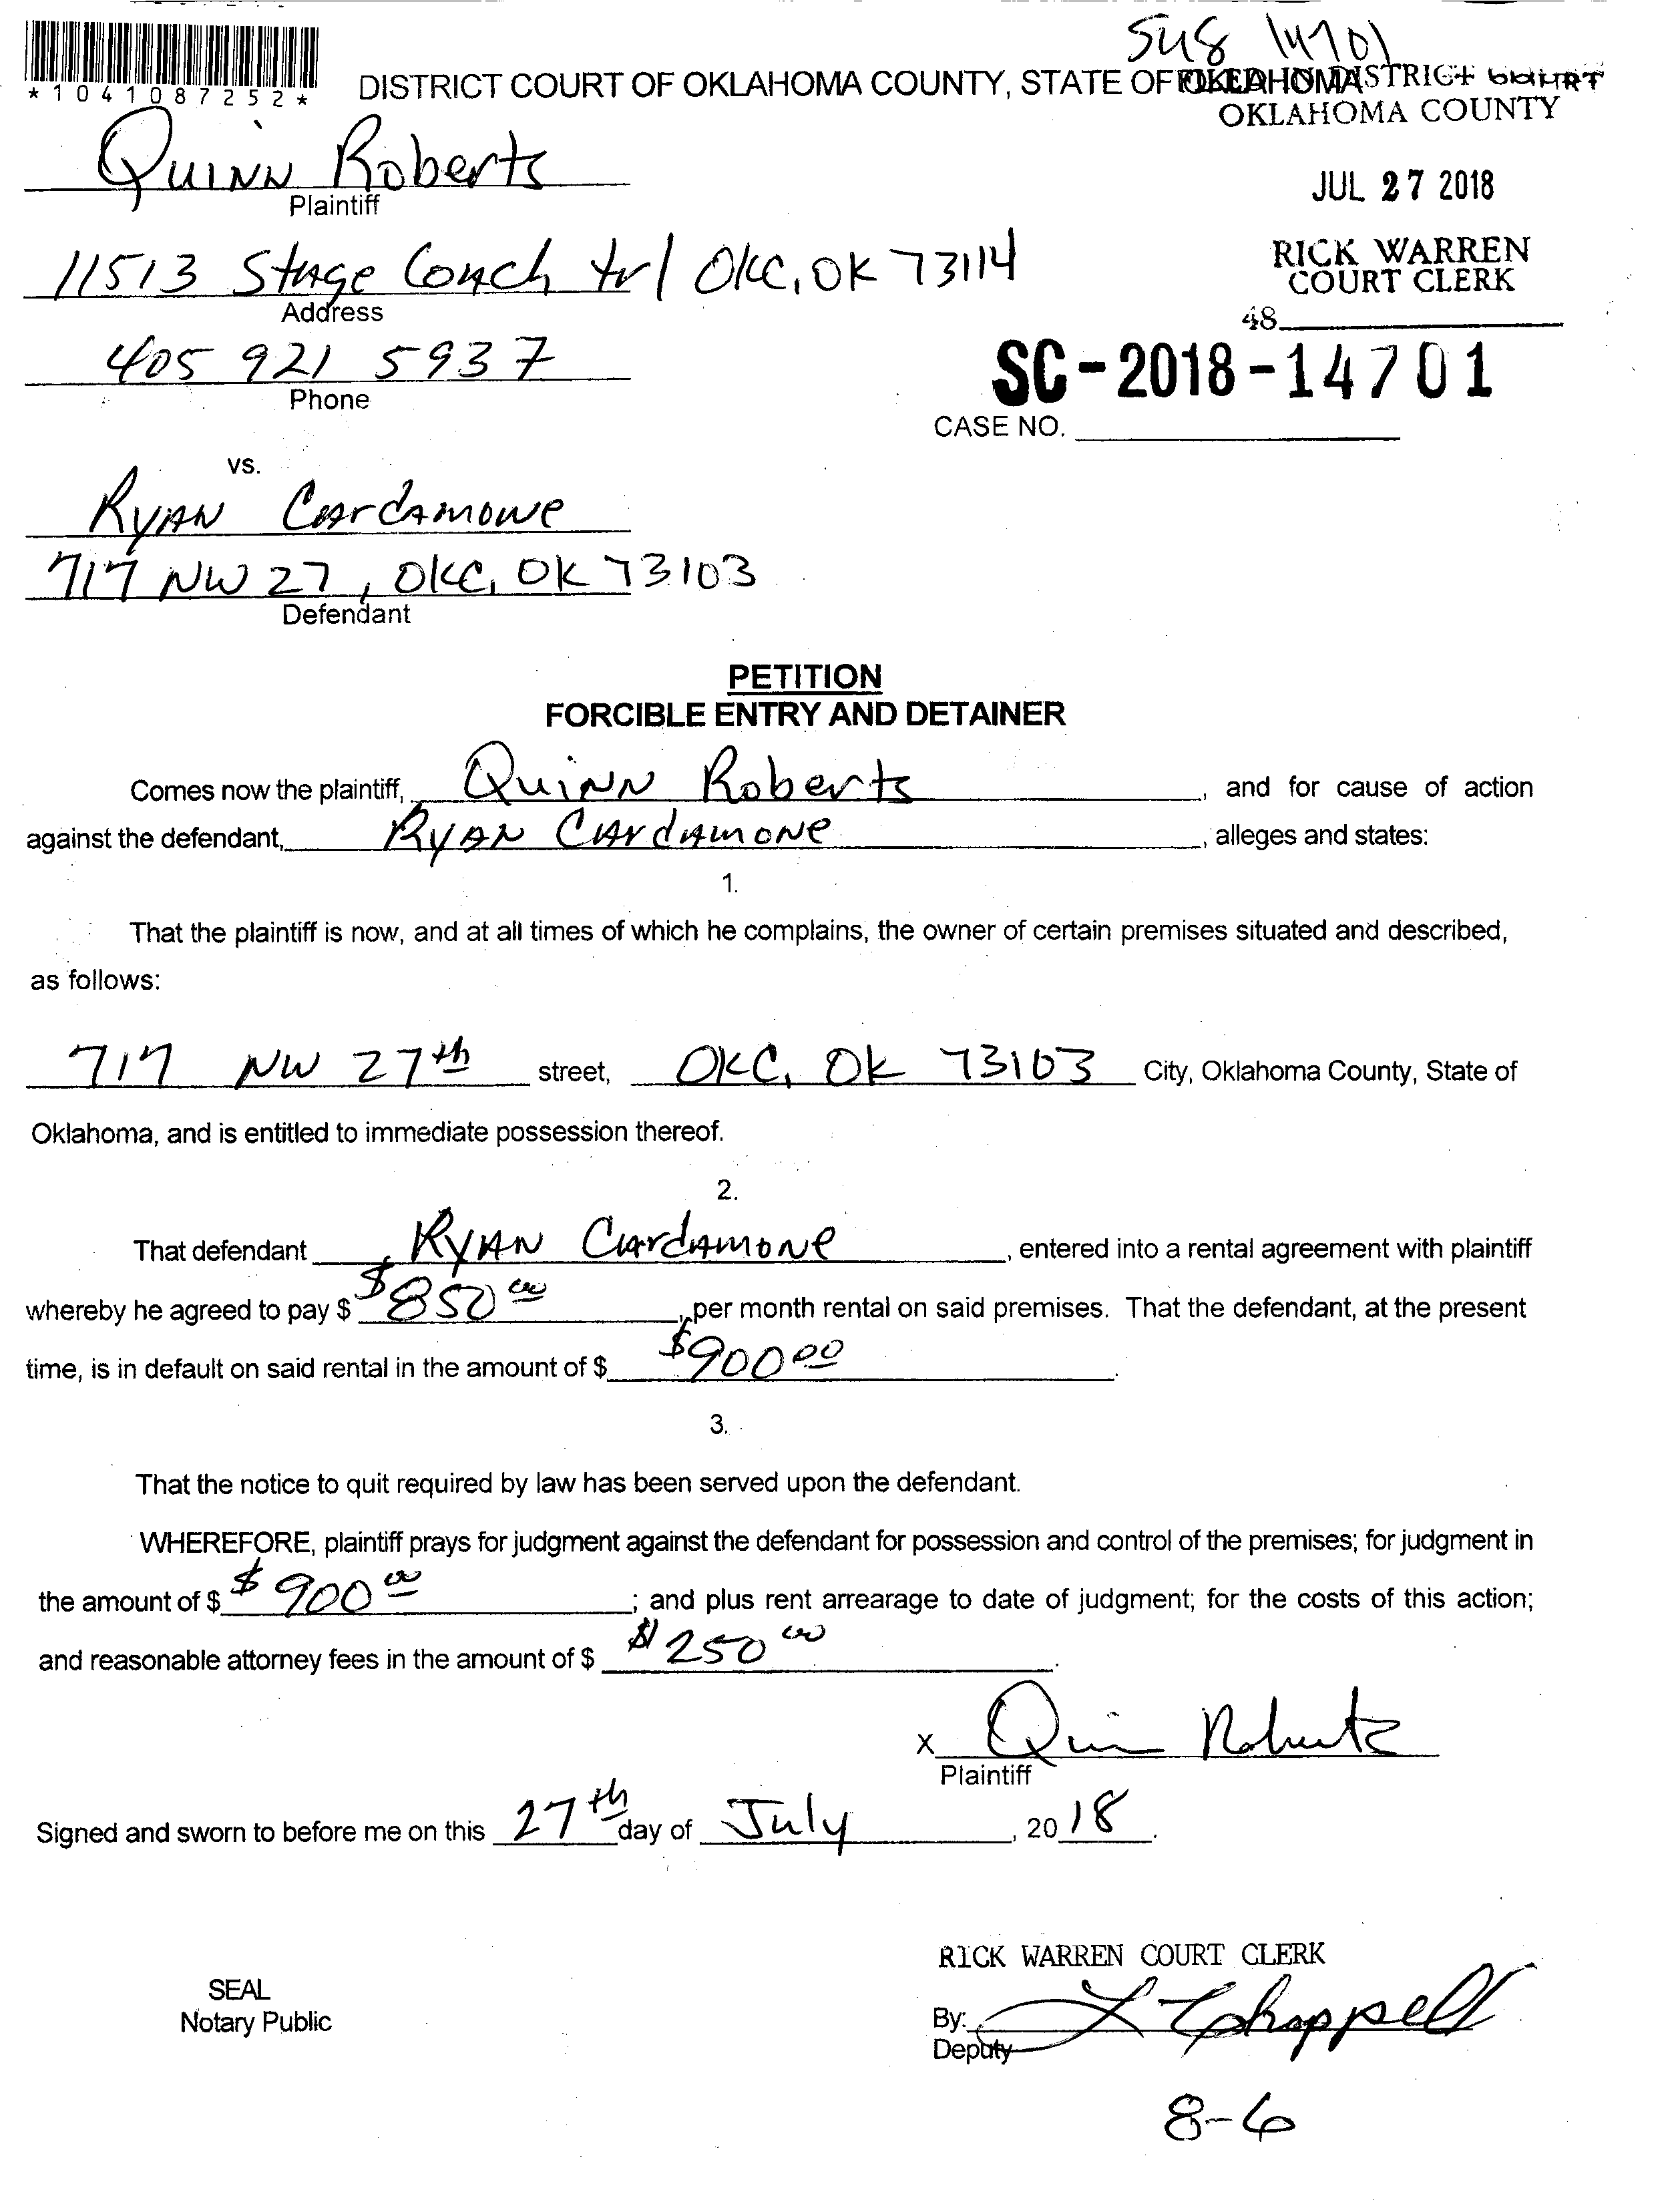 14701
*1041087252*
DISTRICT COURT OF OKLAHOMA COUNTY, STATE OF OKLAHOMA
FILED IN DISTRICT COURT
OKLAHOMA COUNTY
Quinn Roberts
Plaintiff
JUL 27 2018
11513 Stage Coach trl OKC, OK 73114
Address
RICK WARREN
COURT CLERK
48
405 921 5937
Phone
SC-2018-14701
CASE NO.
vs.
Ryan Cardamone
717 NW 27, OKC, OK 73103
Defendant
PETITION
FORCIBLE ENTRY AND DETAINER
Comes now the plaintiff, Quinn Roberts, and for cause of action
against the defendant, Ryan Cardamone, alleges and states:
1.
That the plaintiff is now, and at all times of which he complains, the owner of certain premises situated and described,
as follows:
717 NW 27th street, OKC, OK 73103 City, Oklahoma County, State of
Oklahoma, and is entitled to immediate possession thereof.
2.
That defendant Ryan Cardamone, entered into a rental agreement with plaintiff
whereby he agreed to pay $ $850 00, per month rental on said premises. That the defendant, at the present
time, is in default on said rental in the amount of $ $900 00.
3.
That the notice to quit required by law has been served upon the defendant.
WHEREFORE, plaintiff prays for judgment against the defendant for possession and control of the premises; for judgment in
the amount of $ $900 00; and plus rent arrearage to date of judgment; for the costs of this action;
and reasonable attorney fees in the amount of $ $250 00.
X Quinn Roberts
Plaintiff
Signed and sworn to before me on this 27th day of July, 2018.
RICK WARREN COURT CLERK
SEAL
Notary Public
By: Chappell
Deputy
8-6